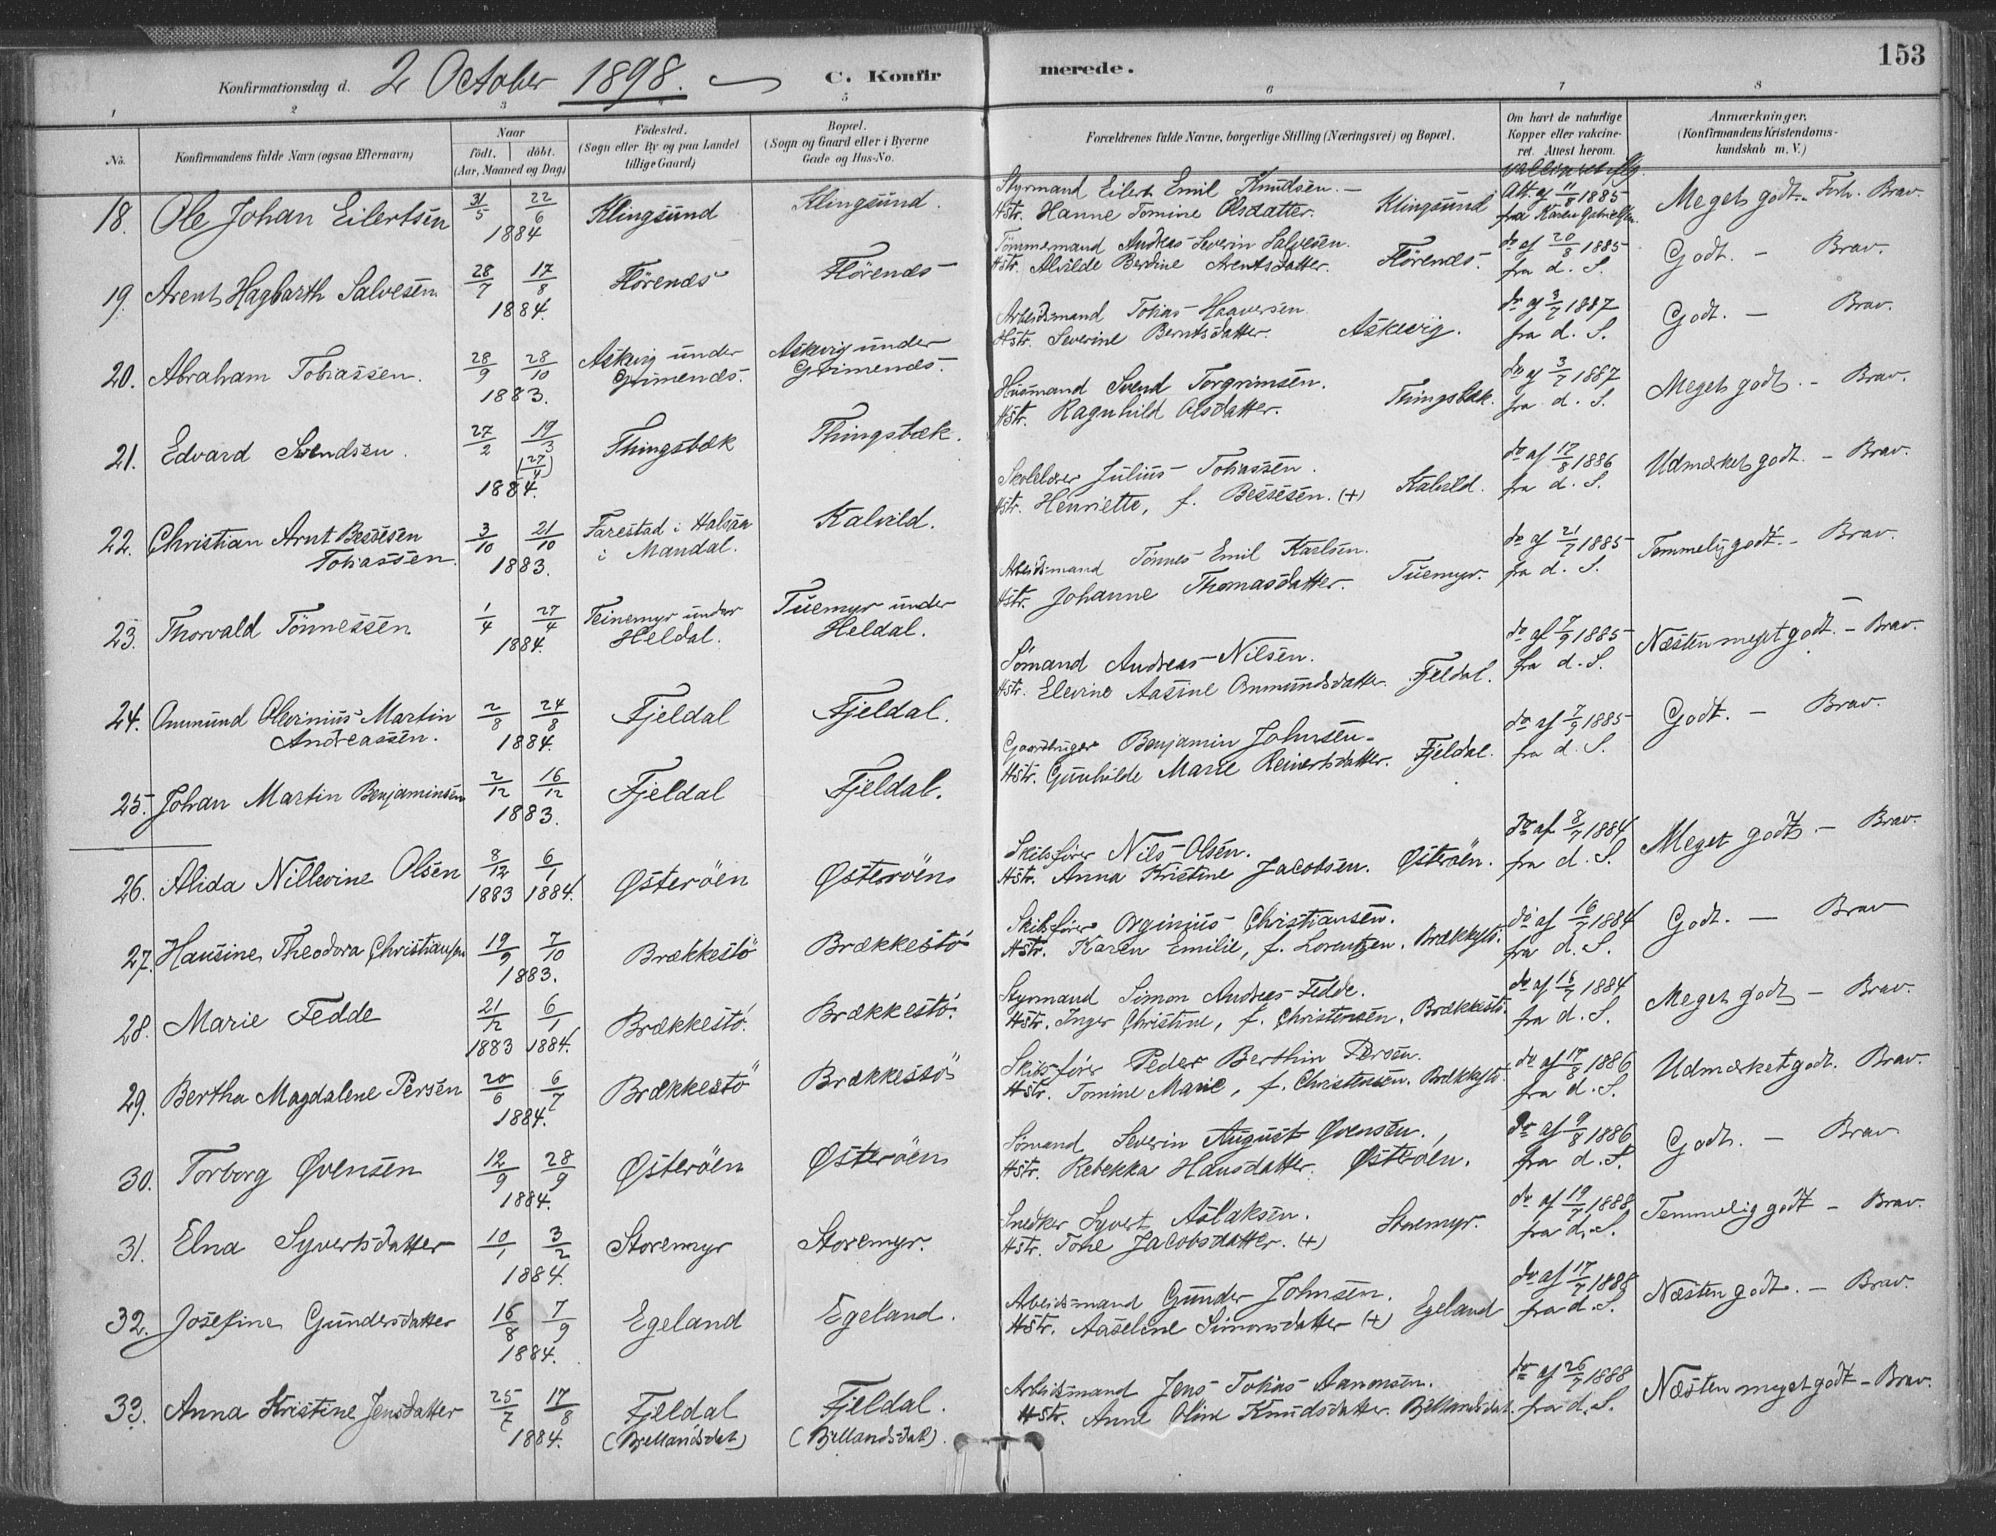 153
Konfirmationsdag d. 2 October 1898. C. Konfirmerede.
1 2 3 5 6 7 8
No. Konfirmandens fulde Navn (ogsaa Efternavn) Naar födt, döbt. (Aar, Maaned og Dag) Födested. (Sogn eller By og paa Landet tillige Gaard) Bopæl. (Sogn og Gaard eller i Byerne Gade og Hus-No. Forældrenes fulde Navne, borgerlige Stilling (Næringsvei) og Bopæl. Om havt de naturlige Kopper eller vakcineret. Attest herom. Anmærkninger. (Konfirmandens Kristendomskundskab m. V.)
18. Ole Johan Eilertsen 31/5 22/6 1884 Klingsund Klingsund. Styrmand Eilert Emil Knudsen. –
Hstr. Hanne Tomine Olsdatter. Klingsund Att. af 11/8 1885 fra Karen Gabrielsen. Meget godt. Forh. Brav.
19. Arent Hagbarth Salvesen 28/7 17/8 1884. Hörends Hörends Tömmermand Andreas Severin Salvesen.
Hstr. Alvilde Berdine Arentsdatter. Hörends. do af 20/8 1885 fra d. S. Godt. – Brav.
20. Abraham Tobiassen. 28/9 28/10 1883. Askvig under Grimends. Askvig under Grimends. Arbeidsmand Tobias Haaversen
Hstr. Severine Berntsdatter. Askevig. do af 3/7 1887 fra d. S. Godt. – Brav.
21. Edvard Svendsen. 27/2 19/3 (27/4) 1884. Thingsbæk Thingsbæk. Husmand Svend Torgrimsen.
Hstr. Ragnhild Olsdatter. Thingsbæk. do af 3/7 1887 fra d. S. Meget godt. – Brav.
22. Christian Arnt Bessesen Tobiassen. 3/10 21/10 1883. Farestad i Halsaa i Mandal. Kalvild. Skolelærer Julius Tobiassen.
Hstr. Henriette, f. Bessesen. (+) Kalvild. do af 17/8 1886 fra d. S. Udmærket godt. – Brav.
23. Thorvald Tönnessen 1/4 27/4 1884. Teinemyr under Heldal. Tuemyr under Heldal. Arbeidsmand Tönnes Emil Karlsen.
Hstr. Johanne Thomasdatter. Tuemyr. do af 21/7 1885 fra d. S. Temmelig godt. – Brav.
24. Ommund Olevinius Martin Andreassen. 2/8 24/8 1884. Fjeldal Fjeldal. Sømand Andreas Nilsen.
Hstr. Elevine Aasine Ommundsdatter. Fjeldal. do af 7/9 1885 fra d. S. Næsten meget godt. – Brav.
25. Johan Martin Benjaminsen 2/12 16/12 1883. Fjeldal Fjeldal. Gaardbruger Benjamin Johnsen.
Hstr. Gunhilde Marie Reinertsdatter. Fjeldal. do af 7/9 1885 fra d. S. Godt. – Brav.
26. Alida Nillevine Olsen 8/12 1883 6/1 1884. Østeröen Østeröen Skibsförer Nils Olsen.
Hstr. Anna Kristine Jacobsen. Østeröen. do af 8/7 1884 fra d. S. Meget godt – Brav.
27. Hansine Theodora Christiansen 19/9 7/10 1883. Brækkestö Brækkestö Skibsförer Orginius Christiansen.
Hstr. Karen Emilie, f. Lorentzen. Brækkestö. do af 16/7 1884 fra d. S. Godt. – Brav
28. Marie Fedde 21/12 1883 6/1 1884. Brækkestö. Brækkestö. Styrmand Simon Andreas Fedde.
Hstr. Inger Christine, f. Christensen. Brækkestö. do af 16/7 1884 fra d. S. Meget godt – Brav.
29. Bertha Magdalene Persen 20/6 6/7 1884. Brækkestö Brækkestö Skibsförer Peder Berthin Persen.
Hstr. Tomine Marie, f. Christensen. Brækkestö. do af 17/8 1886 fra d. S. Udmærket godt. Brav.
30. Torborg Øvensen 12/9 28/9 1884. Østeröen Østeröen Sømand Severin August Øvensen.
Hstr. Rebekka Hansdatter. Østeröen. do af 9/8 1886 fra d. S. Godt. – Brav
31. Elna Syvertsdatter 10/1 3/2 1884. Storemyr Storemyr. Snedker Syvert Aslaksen.
Hstr. Tone Jacobsdatter. (+) Storemyr. do af 19/7 1888 fra d. S. Temmelig godt – Brav.
32. Josefine Gundersdatter 16/8 7/9 1884. Egeland Egeland. Arbeidsmand Gunder Johnsen.
Hstr. Aaselene Simonsdatter (+) Egeland do af 17/7 1888 fra d. S. Næsten godt. – Brav.
33. Anna Kristine Jensdatter 25/7 17/8 1884. Fjeldal (Bjellandsdal) Fjeldal. (Bjellandsdal). Arbeidsmand Jens Tobias Aanonsen.
Hstr. Anne Oline Knudsdatter. Bjellandsdal. do af 26/7 1888 fra d. S. Næsten meget godt – Brav.